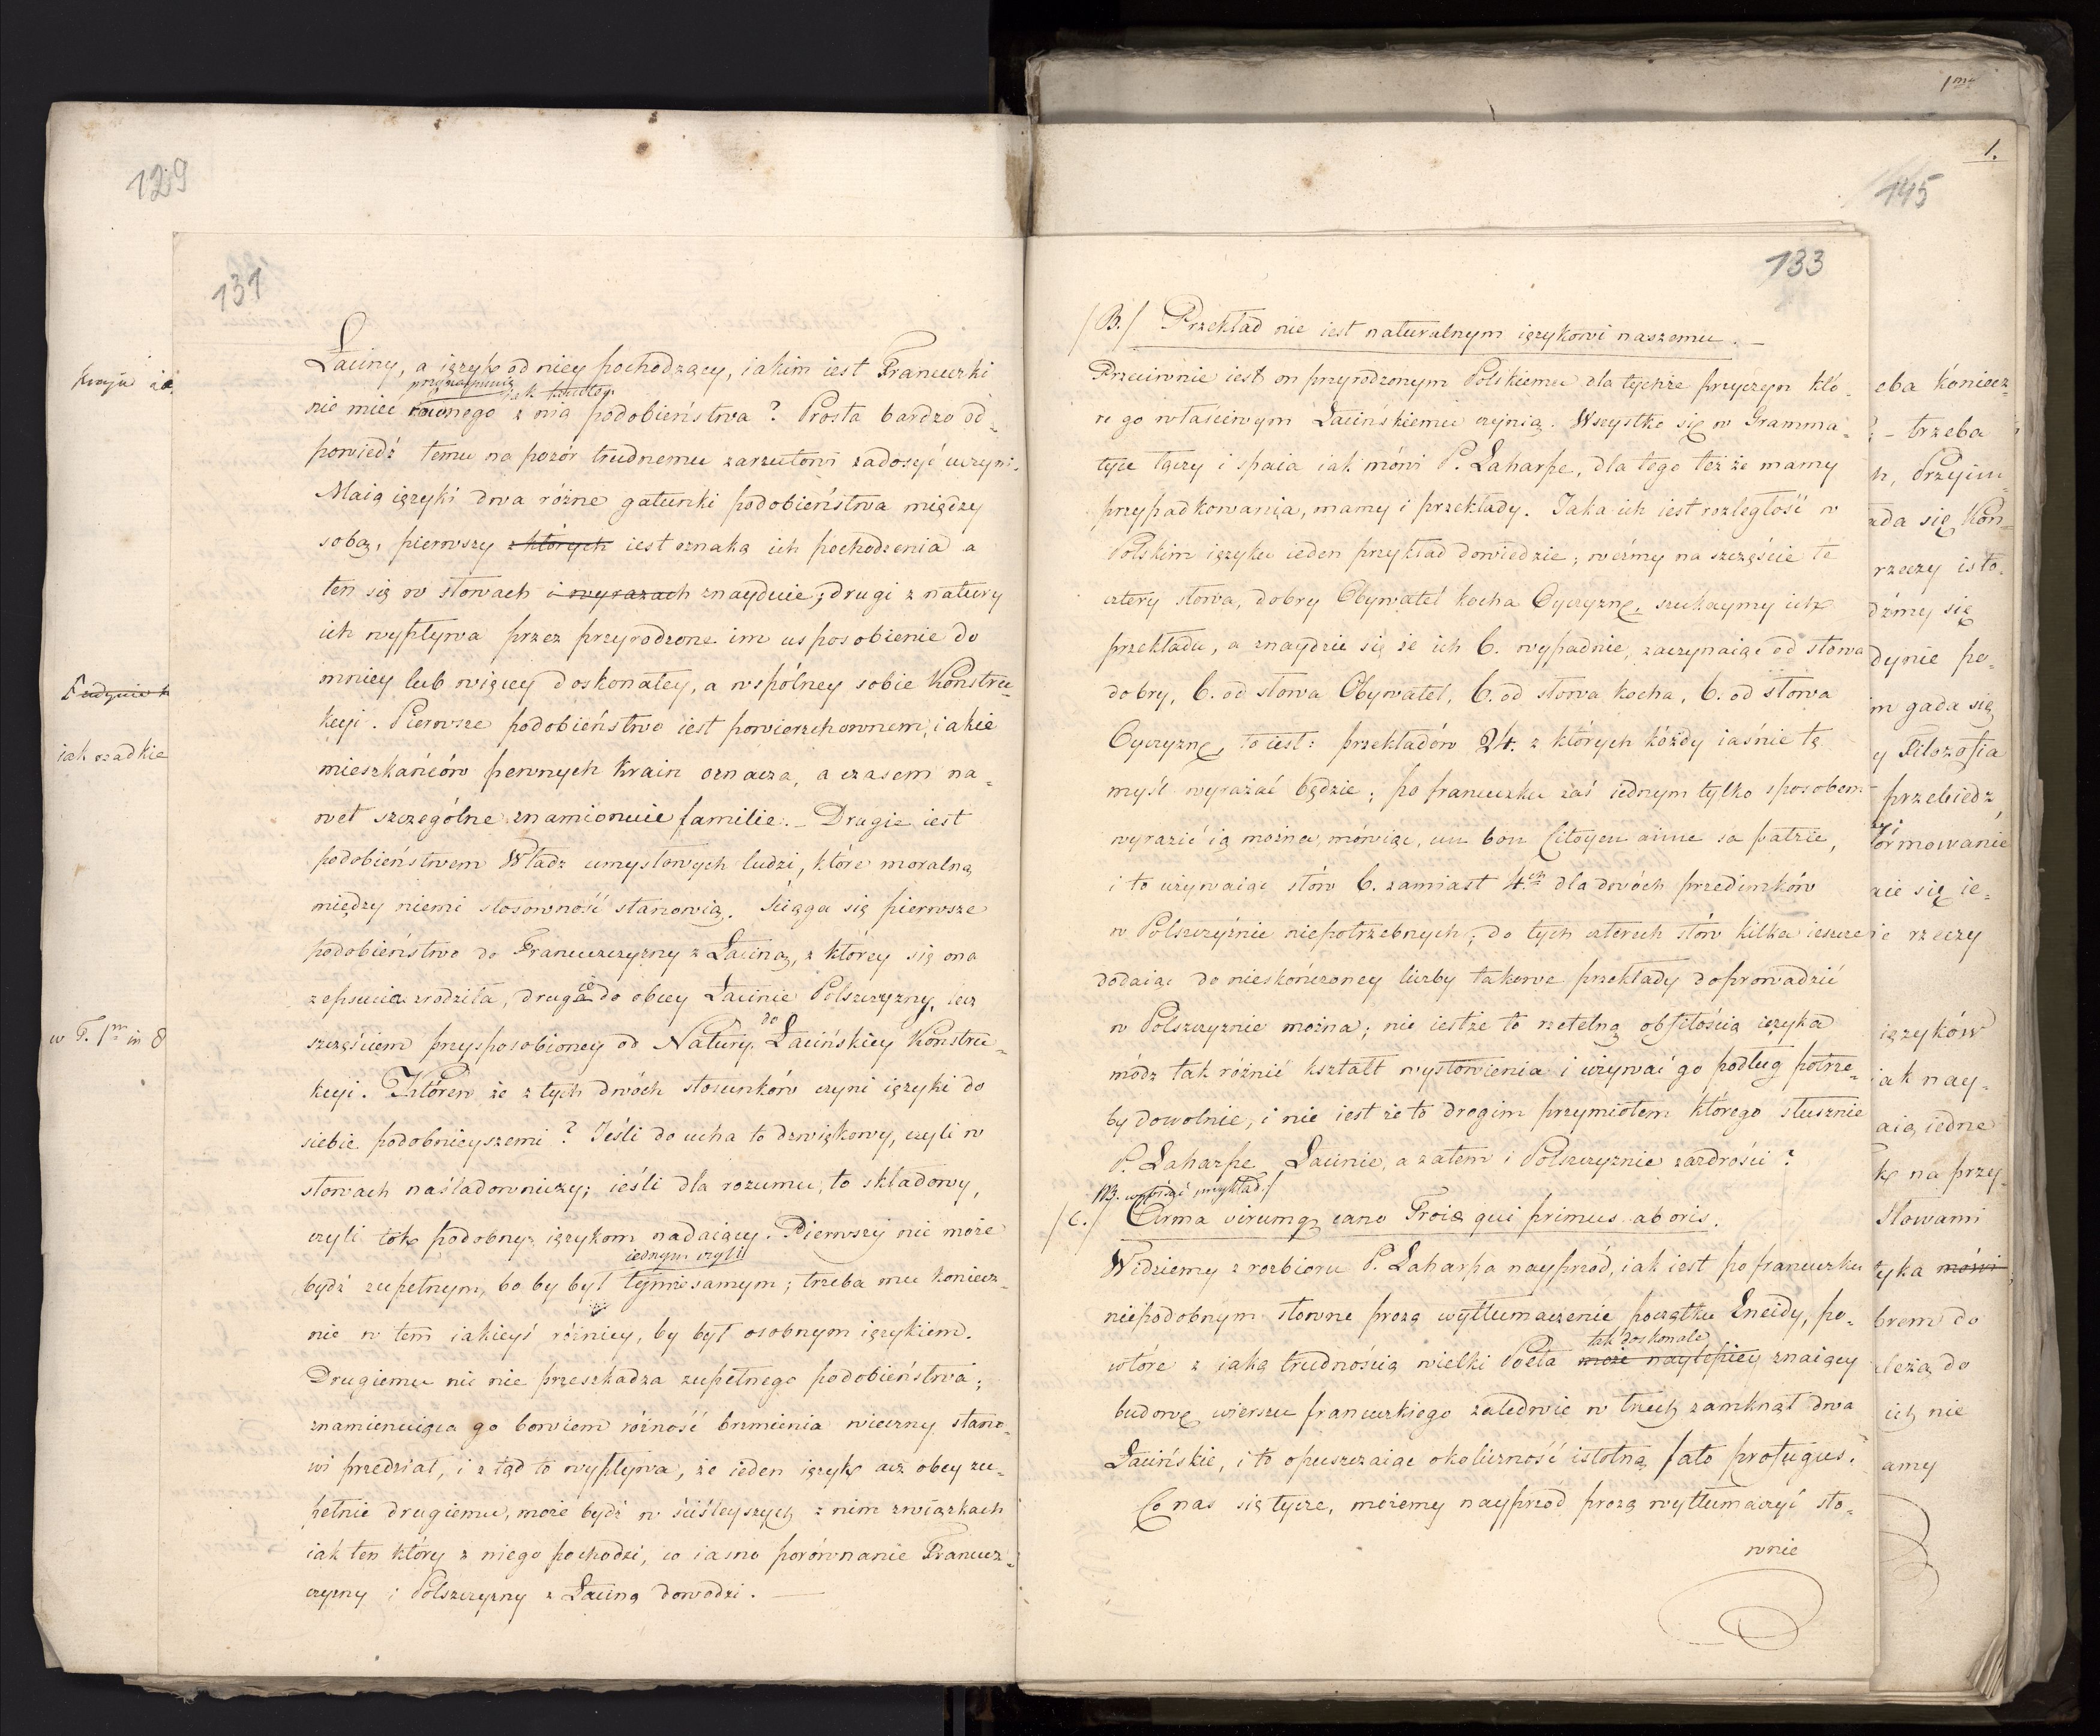 129
131
kraju że
Jedynie
iak rzadkie
w T. 1m in 8
Łaciny, a ięzyk od niey pochodzący, iakim iest Francuzki
przynaymniey
nie mieć równego z nią podobieństwa? Prosta bardzo od-
powiedź temu na pozór trudnemu zarzutowi zadosyć uczyni.
Maią ięzyki dwa różne gatunki podobieństwa między
sobą, pierwszy z których iest oznaką ich pochodzenia a
ten się w słowach i wyrazach znayduie; drugi z natury
ich wypływa przez przyrodzone im usposobienie do
mniey lub więcey doskonałey, a wspólney sobie Konstru-
kcyi. Pierwsze podobieństwo iest powierzchownem, iakie
mieszkańców pewnych krain oznacza, a czasem na-
wet szczególne znamionuie familie. _ Drugie iest
podobieństwem Władz umysłowych ludzi, które moralną
między niemi stosowność stanowią. Ściąga się pierwsze
podobieństwo do Francuzczyzny z Łaciną, z którey się ona
zepsucia zrodziła, drugie do obcey Łacinie Polszczyzny, lecz
do
szczęściem przysposobioney od Natury Łacińskiey Konstru-
kcyi. Któren że z tych dwóch stosunków czyni ięzyki do
siebie podobnieyszemi? Jeśli do ucha to dzwiękowy, czyli w
słowach naśladowniczy; ieśli dla rozumu, to składowy,
czyli tok podobny ięzykom nadaiący. Pierwszy nie może
iednym czyli
bydź zupełnym, bo by był tymże samym; trzeba mu koniecz-
nie w tem iakieyś różnicy, by był osobnym ięzykiem.
Drugiemu nic nie przeszkadza zupełnego podobieństwa;
znamienuiąca go bowiem różność brzmienia wieczny stano-
wi przedział, i z tąd to wypływa, że ieden ięzyk acz obcy zu-
pełnie drugiemu, może bydź w ściśleyszych z nim związkach
iak ten który z niego pochodzi, co iasno porównanie Francuz-
czyzny i Polszczyzny z Łaciną dowodzi. _
133
/B./ Przekład nie iest naturalnym ięzykowi naszemu. _
Przeciwnie iest on przyrodzonym Polskiemu dla tychże przyczyn któ-
re go właściwym Łacińskiemu czynią. Wszystko się w Gramma-
tyce łączy i spaia iak mówi P. Laharpe, dla tego też że mamy
przypadkowania, mamy i przekłady. Jaka ich iest rozległość w
Polskim ięzyku ieden przykład dowiedzie; weźmy na szczęście te
cztery słowa, dobry Obywatel kocha Oyczyznę, szukaymy ich
przekładu, a znaydzie się że ich 6. wypadnie, zaczynaiąc od słowa
dobry, 6. od słowa Obywatel, 6. od słowa kocha, 6. od słowa
Oyczyznę, to iest: przekładów 24. z których kóżdy iaśnie tę
myśl wyrażać będzie; po francuzku zaś iednym tylko sposobem
wyrazić ią można, mówiąc, un bon Citoyen aime sa patrie,
i to używaiąc słów 6. zamiast 4ch dla dwóch przedimków
w Polszczyźnie niepotrzebnych; do tych czterech słów kilka ieszcze
dodaiąc do nieskończoney liczby takowe przekłady doprowadzić
w Polszczyznie można; nie iestże to rzetelną obfitością ięzyka
módz tak różnić kształt wysłowienia i używać go podług potrze-
by dowolnie, i nie iest że to drogim przymiotem którego słusznie
P. Laharpe Łacinie, a zatem i Polszczyznie zazdrości?
NB. wpisać przykład./
/C./ Arma virumq cano Troiæ qui primus ab oris.
Widziemy z rozbioru P. Laharpa nayprzód, iak iest po francuzku
niepodobnym słowne prozą wytłumaczenie początku Eneidy, po-
tak doskonale
wtóre z iaką trudnością wielki Poeta może naylepiey znaiący
budowę wierszu francuzkiego zaledwie w trzech zamknął dwa
Łacińskie, i to opuszczaiąc okoliczność istotną fato profugus.
Co nas się tycze, możemy nayprzód prozą wytłumaczyć sło-
wnie
1mo
1.
145
eba koniecz-
- trzeba
h, Przyim-
ada się Kon-
rzeczy isto-
dźmy się
dynie po-
m gada się
y Filozofia
przebiedź
formowanie
aie się ie-
ie rzeczy
ięzyków
iak nay-
aią iedne
kę na przy-
Słowami
tyka mówi
brem do
leżą do
ich nie
amy